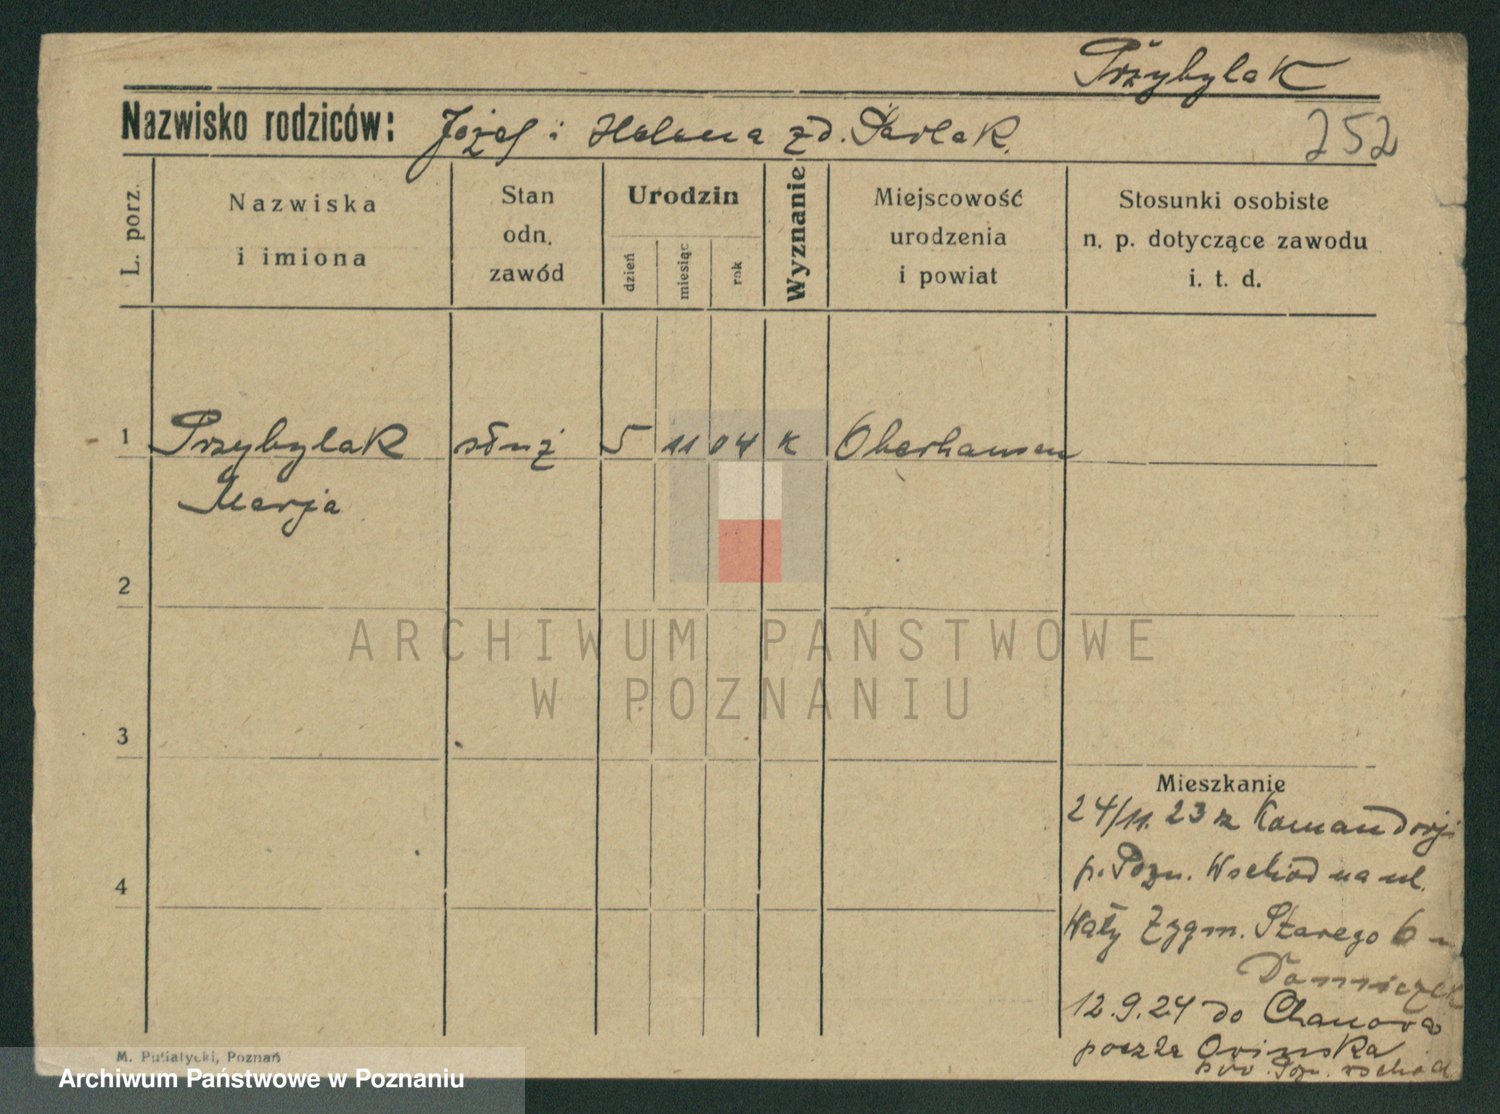 Przybylak
Nazwisko rodziców: Józef i Helena zd. Pawlak.
252
L. porz.
Nazwiska
i imiona
Stan
odn.
zawód
Urodzin
dzień
miesiąc
rok
Wyznanie
Miejscowość
urodzenia
i powiat
Stosunki osobiste
n. p. dotyczące zawodu
i. t. d.
1 Przybylak służ 5 11 04 K Oberhausen
Marja
2
3
4
ARCHIWUM PAŃSTWOWE
W POZNANIU
Mieszkanie
24/11. 23 z Komandorji
p. Pozn. Wschód na ul.
Wały Zygm. Starego 6
12.9.24 do
poczta
pow. Pozn. wschód
M. Putiatycki, Poznań
Archiwum Państwowe w Poznaniu